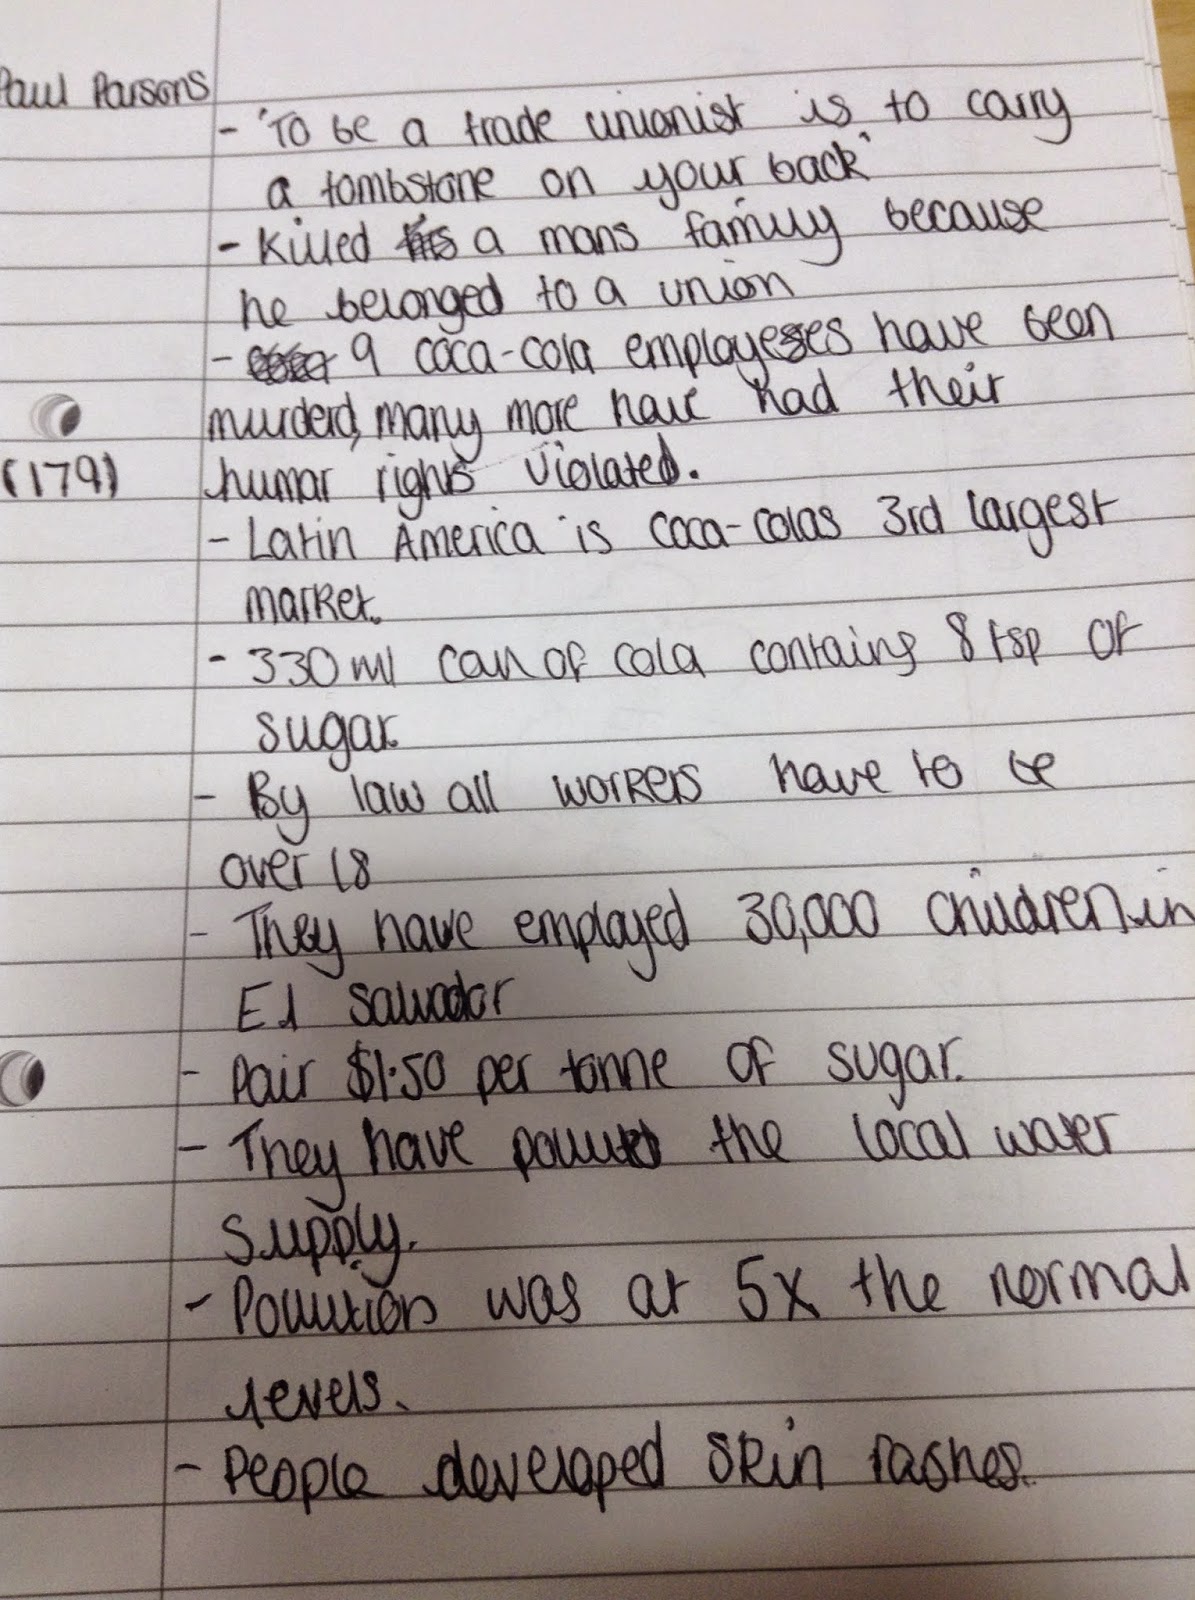 Paul Parsons
- 'To be a trade unionist is to carry
a tombstone on your back'
- Killed a mans family because
he belonged to a union
- 9 coca-cola employeses have been
murderd, many more have had their
(179)
human rights violated.
- Latin America is coca-colas 3rd largest
market.
- 330ml can of cola contains 8 tsp of
sugar.
- By law all workers have to be
over 18
- They have employed 30,000 children in
El salvador
- Pair $1.50 per tonne of sugar.
- They have the local water
supply.
- Pollution was at 5x the normal
levels.
- People developed skin rashes.